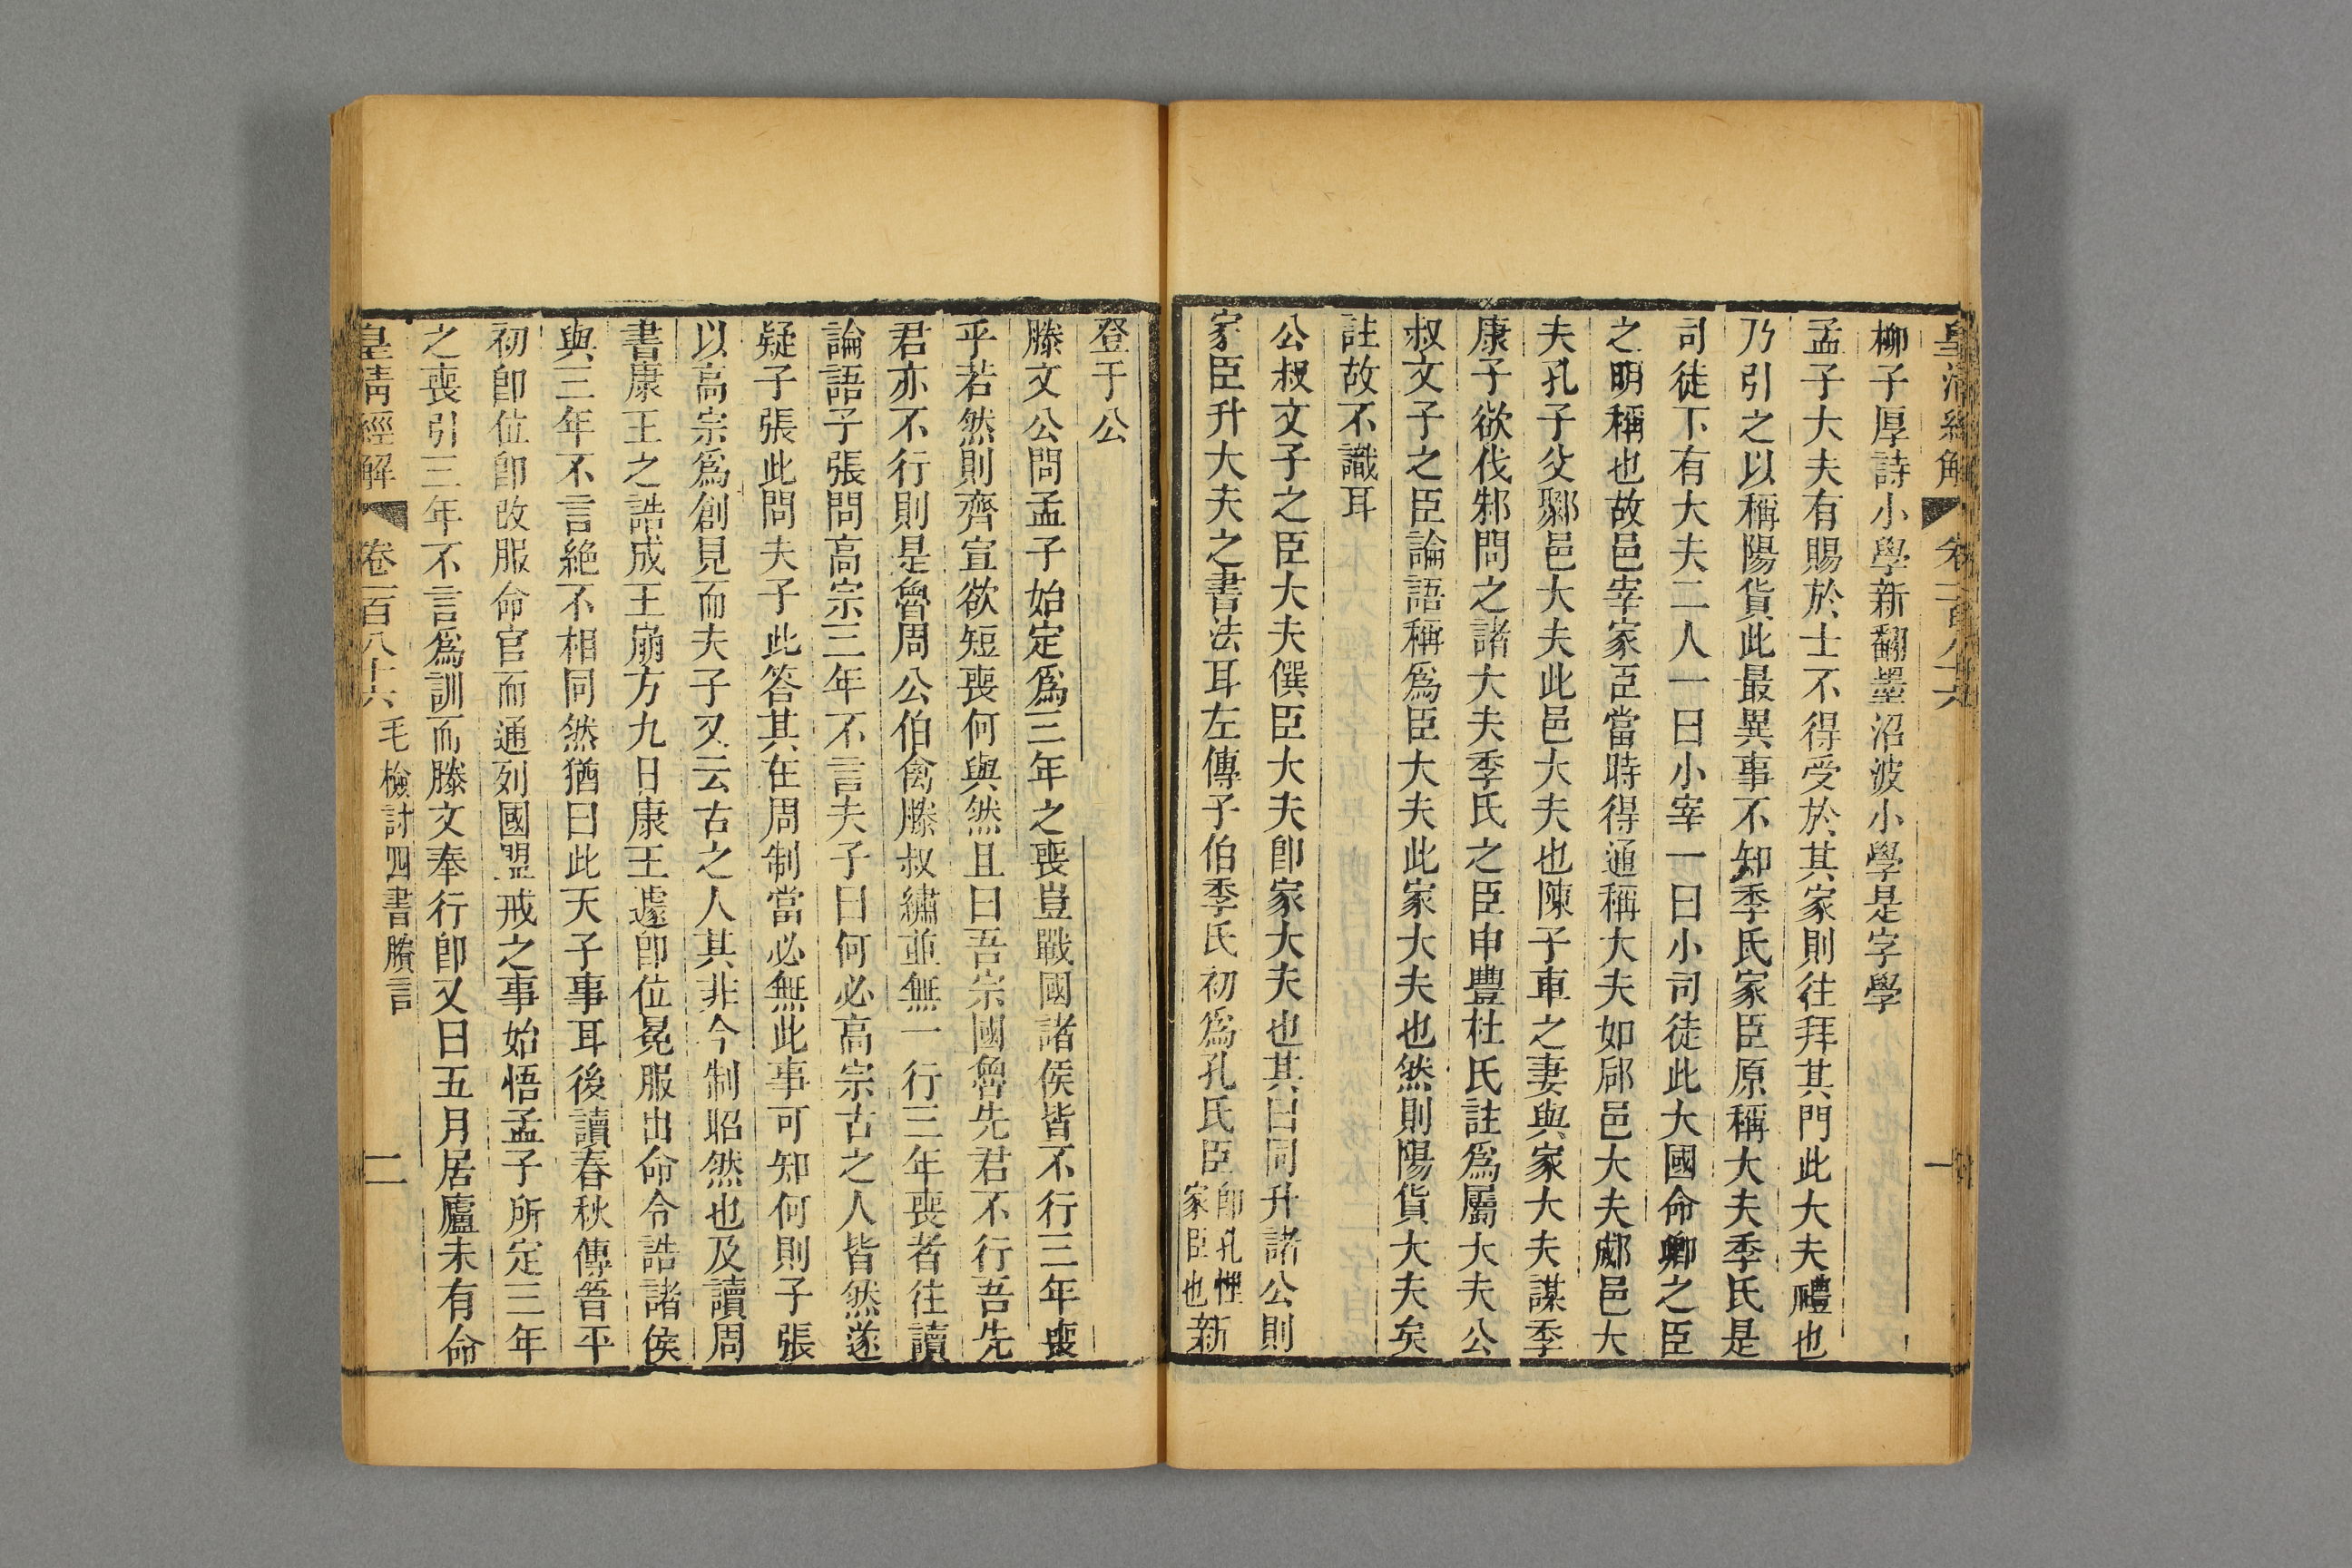 皇清經解 卷一百八十六 一
柳子厚詩小學新翻墨沼波小學是字學
孟子大夫有賜於士不得受於其家則往拜其門此大夫禮也
乃引之以稱陽貨此最異事不知季氏家臣原稱大夫季氏是
司徒下有大夫二人一曰小宰一曰小司徒此大國命卿之臣
之明稱也故邑宰家臣當時得通稱大夫如郈邑大夫郕邑大
夫孔子父鄹邑大夫此邑大夫也陳子車之妻與家大夫謀季
康子欲伐邾問之諸大夫季氏之臣申豐杜氏註爲屬大夫公
叔文子之臣論語稱爲臣大夫此家大夫也然則陽貨大夫矣
註故不識耳
公叔文子之臣大夫僎臣大夫卽家大夫也其曰同升諸公則
家臣升大夫之書法耳左傳子伯季氏初爲孔氏臣卽孔悝家臣也新
登于公
滕文公問孟子始定爲三年之喪豈戰國諸侯皆不行三年喪
乎若然則齊宣欲短喪何與然且曰吾宗國魯先君不行吾先
君亦不行則是魯周公伯禽滕叔繡並無一行三年喪者往讀
論語子張問高宗三年不言夫子曰何必高宗古之人皆然遂
疑子張此問夫子此答其在周制當必無此事可知何則子張
以高宗爲創見而夫子又云古之人其非今制昭然也及讀周
書康王之誥成王崩方九日康王遽卽位冕服出命令誥諸侯
與三年不言絕不相同然猶曰此天子事耳後讀春秋傳晉平
初卽位卽改服命官而通列國盟戒之事始悟孟子所定三年
之喪引三年不言爲訓而滕文奉行卽又曰五月居廬未有命
皇清經解 卷一百八十六 毛檢討四書賸言 二